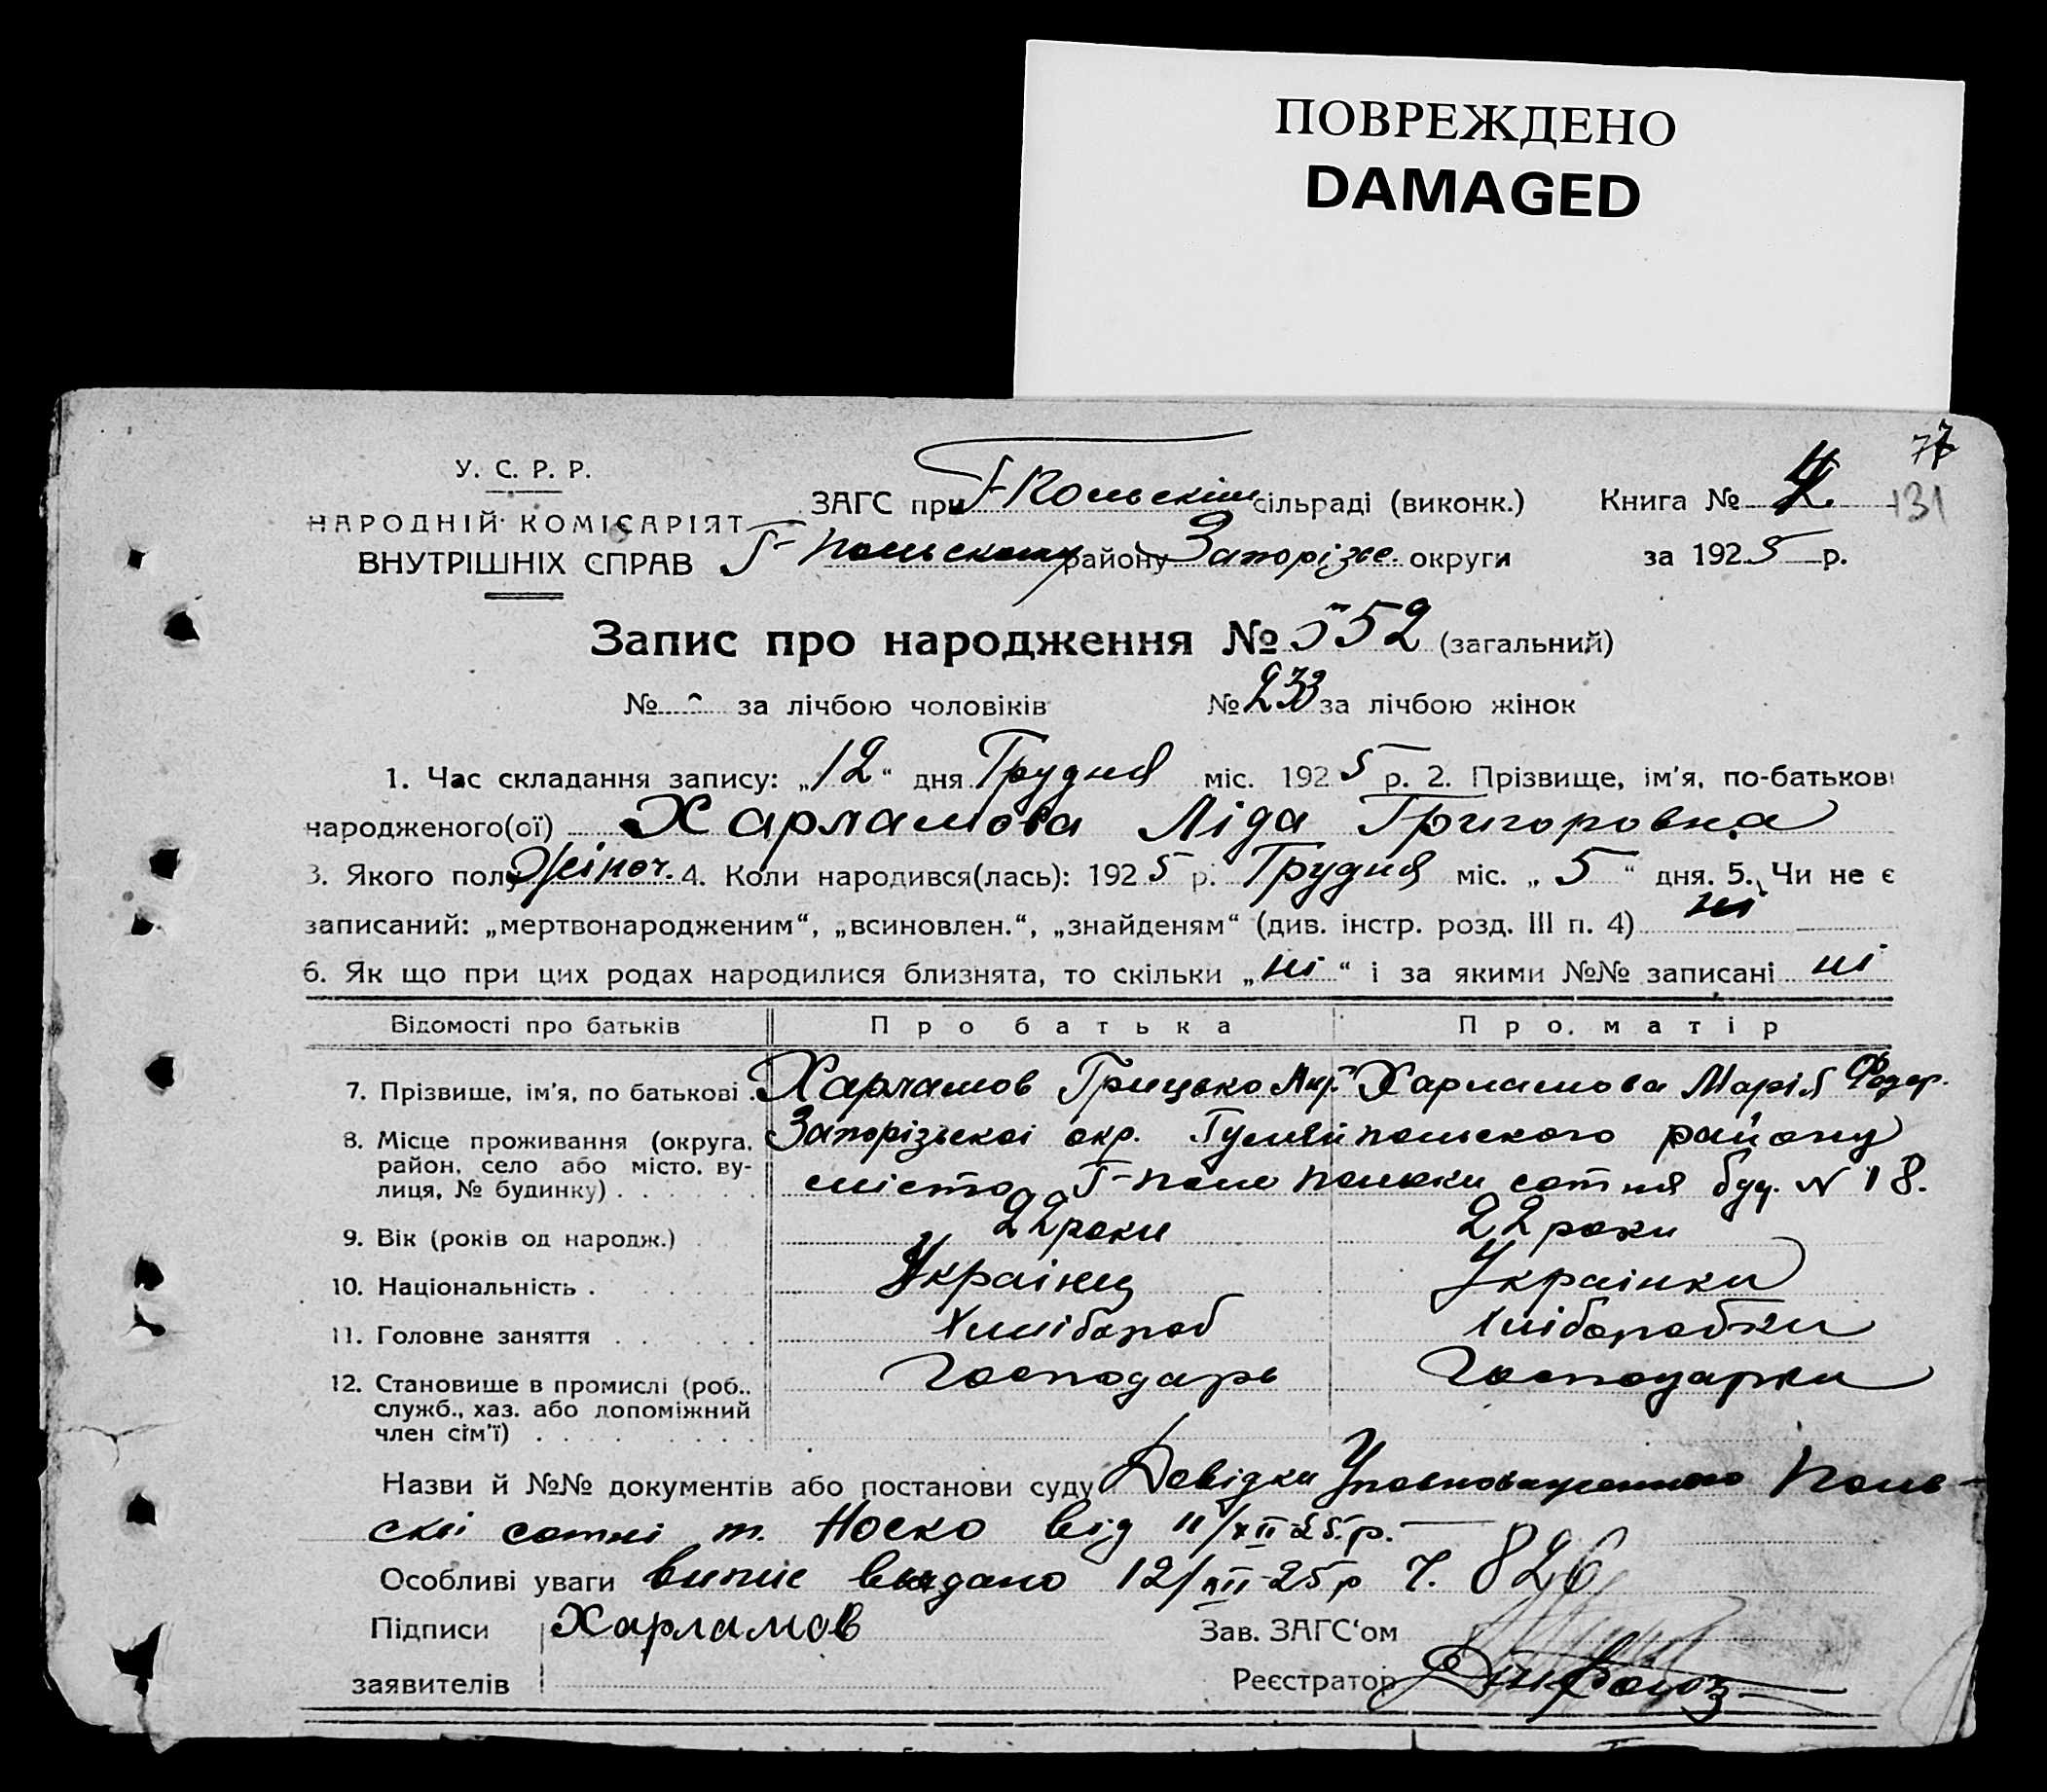 ПОВРЕЖДЕНО
DAMAGED
77
131
У. С. Р. Р.
НАРОДНІЙ КОМІСАРІЯТ
ВНУТРІШНІХ СПРАВ
ЗАГС при Г-Польскім сільраді (виконк.) Книга № 4
Г-Польскому району Запорізьк. округи за 1925 р.
Запис про народження № 552 (загальний)
№ - за лічбою чоловіків № 233 за лічбою жінок
1. Час складання запису: „12“ дня Грудня міс. 1925 р. 2. Прізвище, ім'я, по-батькові
народженого(ої) Харламова Ліда Григоровна
3. Якого полу Жіноч. 4. Коли народився(лась): 1925 р. Грудня міс. „5“ дня. 5. Чи не є
записаний: „мертвонародженим“, „всиновлен.“, „знайденям“ (див. інстр. розд. III п. 4) ні
6. Як що при цих родах народилися близнята, то скільки „ні“ і за якими №№ записані ні
Відомості про батьків Про батька Про матір
7. Прізвище, ім'я, по батькові Харламов Грицько Харламова Марія Федор.
8. Місце проживання (округа, район, село або місто, вулиця, № будинку) Запорізьскоі окр. Гуляйпольского району
місто Г-поле польски сотня буд. № 18.
9. Вік (років од народж.) 22 роки 22 роки
10. Національність Українец Українка
11. Головне заняття Хлібороб Хліборобка
12. Становище в промислі (роб., служб., хаз. або допоміжний член сім'ї) Господарь Господарка
Назви й №№ документів або постанови суду Довідка Уповноваженного Поль-
скої сотні т. Носко від 11/XII-25 р.
Особливі уваги випис выдано 12/XII-25 р Ч. 826
Підписи Харламов Зав. ЗАГС‘ом
заявителів Реєстратор